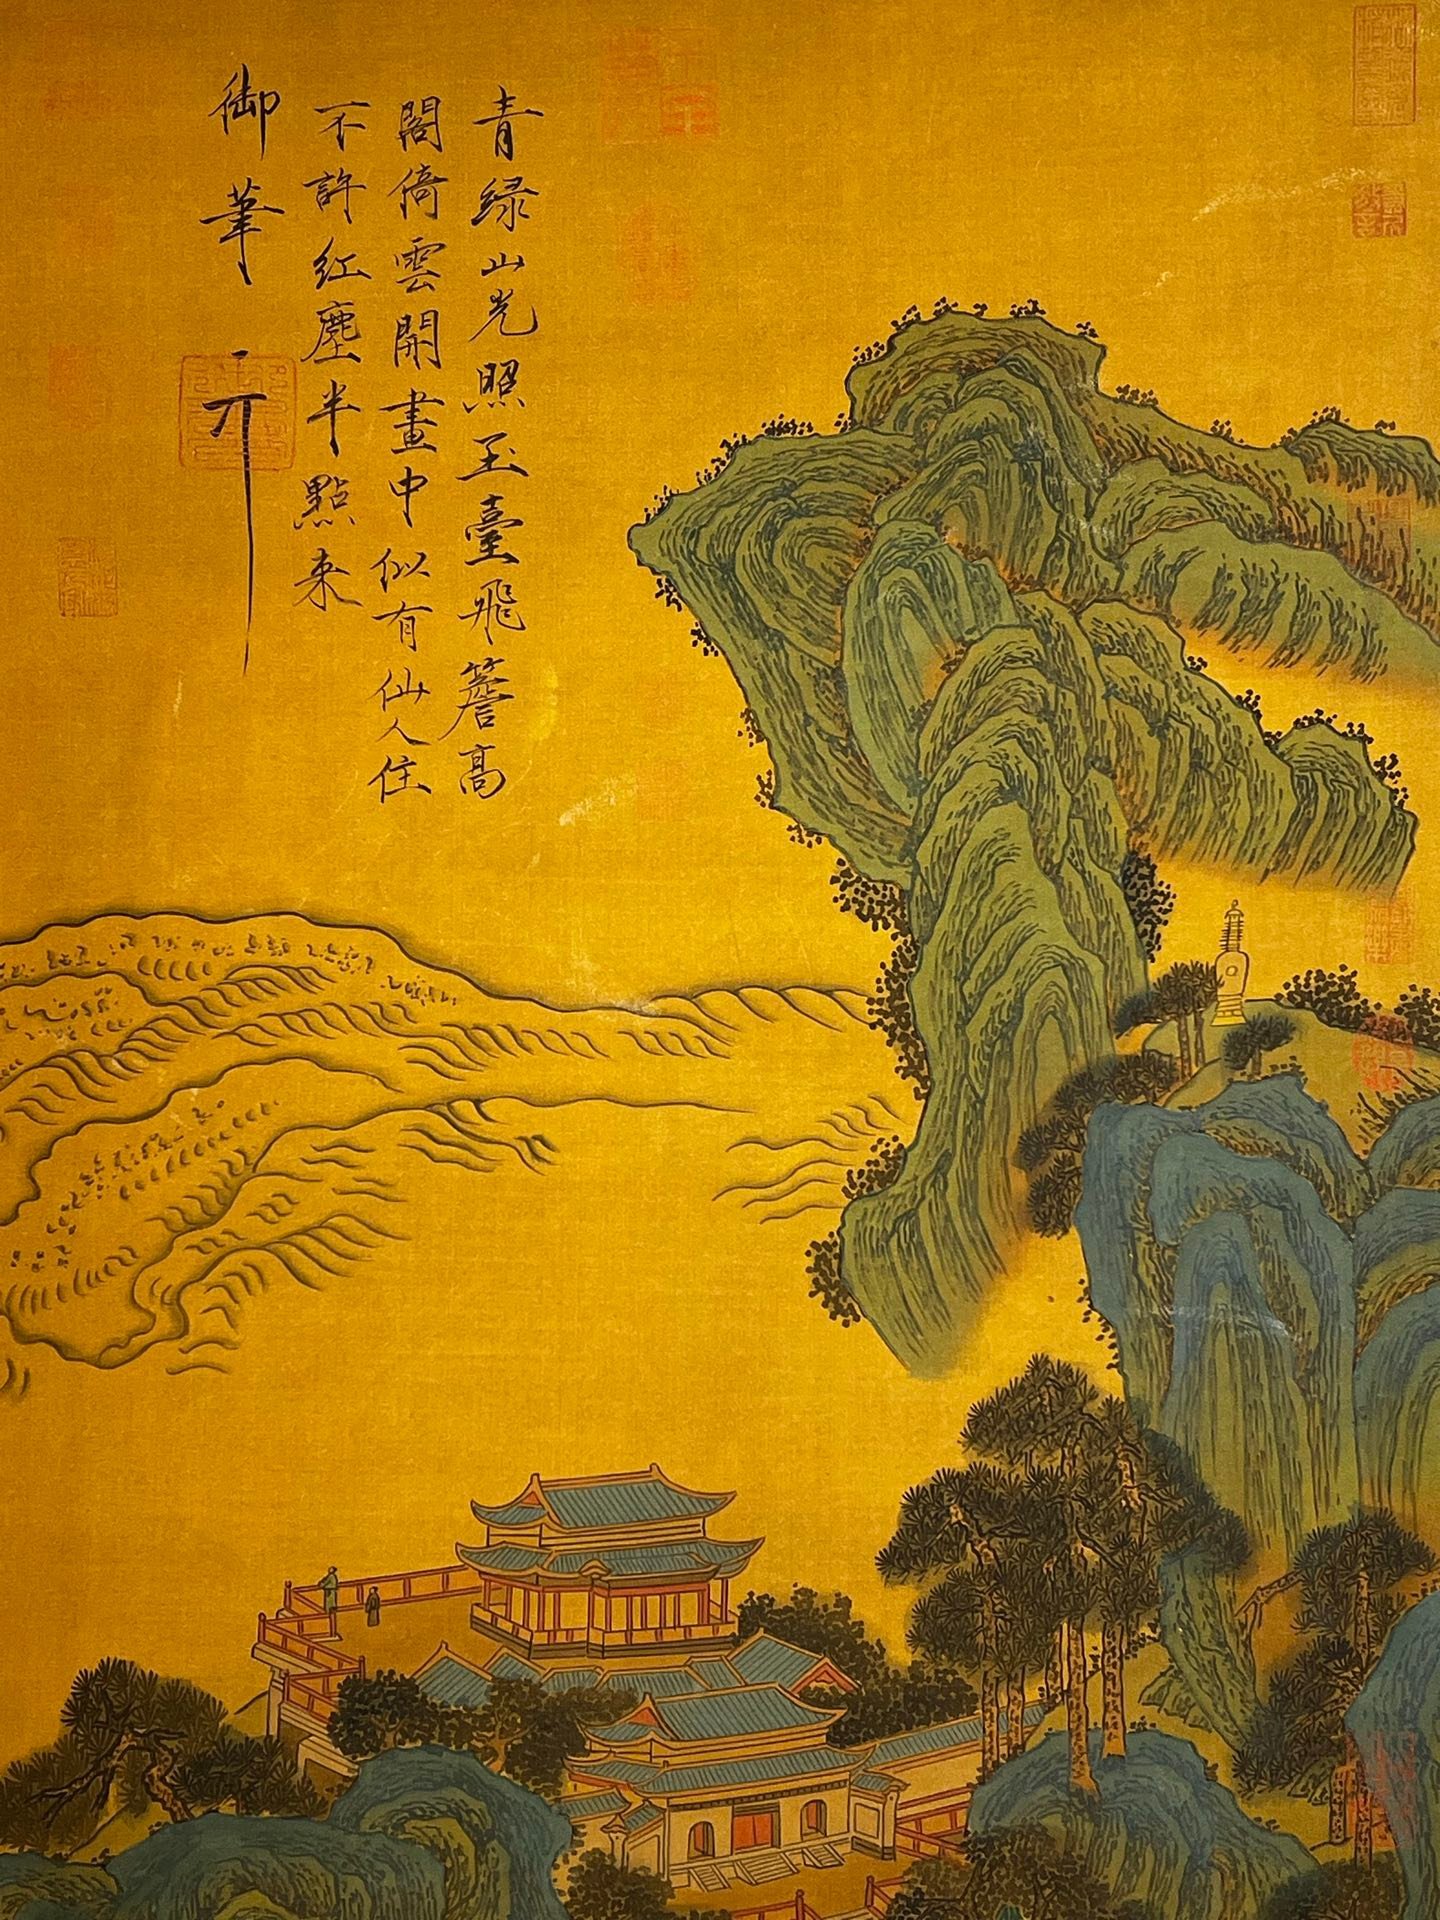 青緑山光照玉臺飛簷高
閣倚雲開畫中似有仙人住
不許紅塵半點来
御筆